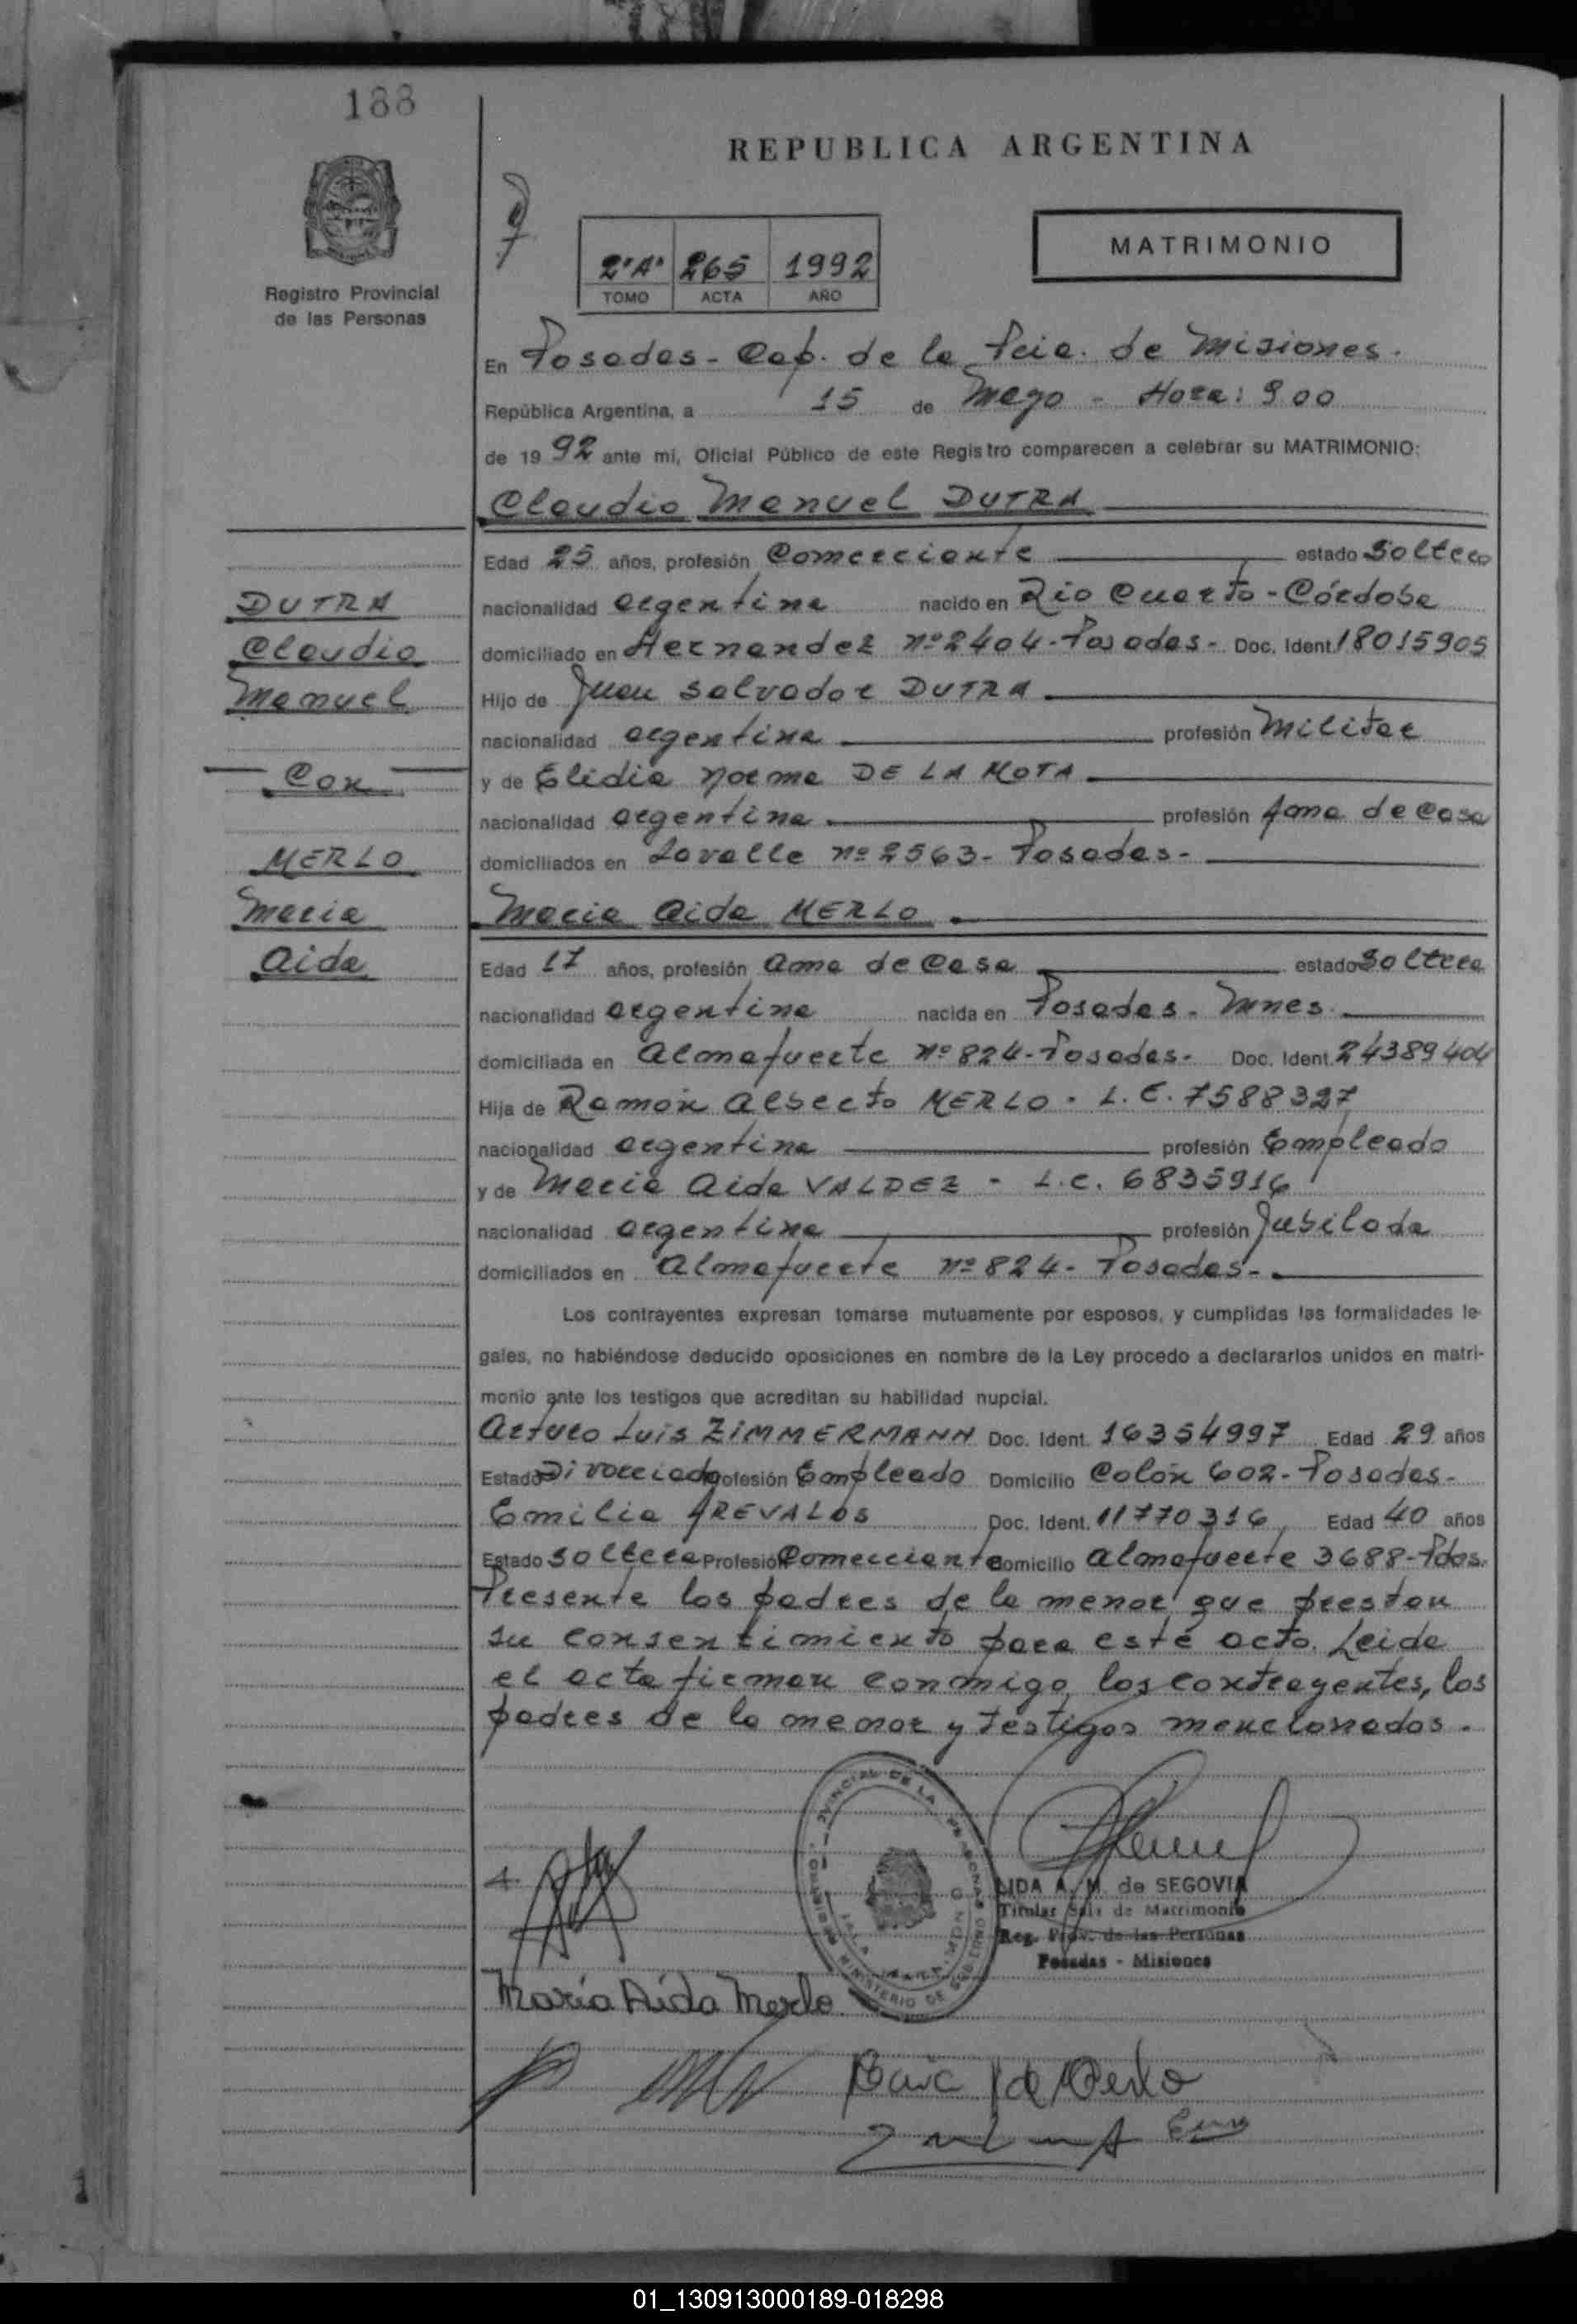 188
REPUBLICA ARGENTINA
MATRIMONIO
2º"A" 265 1992
TOMO ACTA AÑO
Registro Provincial
de las Personas
En Posadas - Cap. de la Pcia. de Misiones.
República Argentina, a 15 de Mayo - Hora: 9.00
de 1992 ante mi, Oficial Público de este Registro comparecen a celebrar su MATRIMONIO:
Claudio Manuel DUTRA
Edad 25 años, profesión Comerciante estado Soltero
nacionalidad argentina nacido en Rio Cuarto - Córdoba
domiciliado en Hernandez nº 2404 - Posadas - Doc. Ident. 18015905
Hijo de Juan Salvador DUTRA
nacionalidad argentina profesión Militar
y de Elidia Norma DE LA MOTA
nacionalidad argentina profesión Ama de Casa
domiciliados en Lavalle nº 2563 - Posadas -
DUTRA
Claudio
Manuel
Con
MERLO
Maria
Aida
Maria Aida MERLO
Edad 17 años, profesión ama de Casa estado Soltera
nacionalidad argentina nacida en Posadas - Mnes.
domiciliada en Almafuerte nº 824 - Posadas - Doc. Ident. 24389404
Hija de Ramón Alberto MERLO - L.E. 7588327
nacionalidad argentina profesión Empleado
y de Maria Aida VALDEZ - L.C. 6835916
nacionalidad argentina profesión Jubilada
domiciliados en Almafuerte nº 824 - Posadas -
Los contrayentes expresan tomarse mutuamente por esposos, y cumplidas las formalidades le-
gales, no habiéndose deducido oposiciones en nombre de la Ley procedo a declararlos unidos en matri-
monio ante los testigos que acreditan su habilidad nupcial.
Arturo Luis ZIMMERMANN Doc. Ident. 16354997 Edad 29 años
Estado Divorciado Profesión Empleado Domicilio Colón 602 - Posadas -
Emilia AREVALOS Doc. Ident. 11770316 Edad 40 años
Estado Soltera Profesión Comerciante Domicilio Almafuerte 3688 - Pdas.
Presente los padres de la menor que prestan
su consentimiento para este acto. Leida
el acta firman conmigo los contrayentes, los
padres de la menor y testigos mencionados.
LIDA A. M. de SEGOVIA
Titular Sala de Matrimonio
Reg. Prov. de las Personas
Posadas - Misiones
María Aída Merlo
de Merlo
01_130913000189-018298